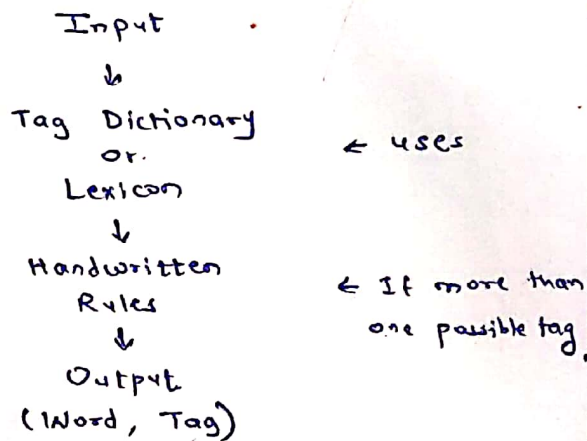 Input
↓
Tag Dictionary
or.
Lexicon
← uses
↓
Handwritten
Rules
← If more than
one possible tag.
↓
Output
(Word, Tag)